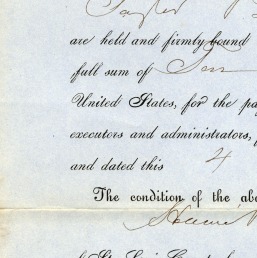 Taylor
are held and firmly bound
full sum of Ten
United States, for the pa
executors and administrators, f
and dated this 4
The condition of the abo